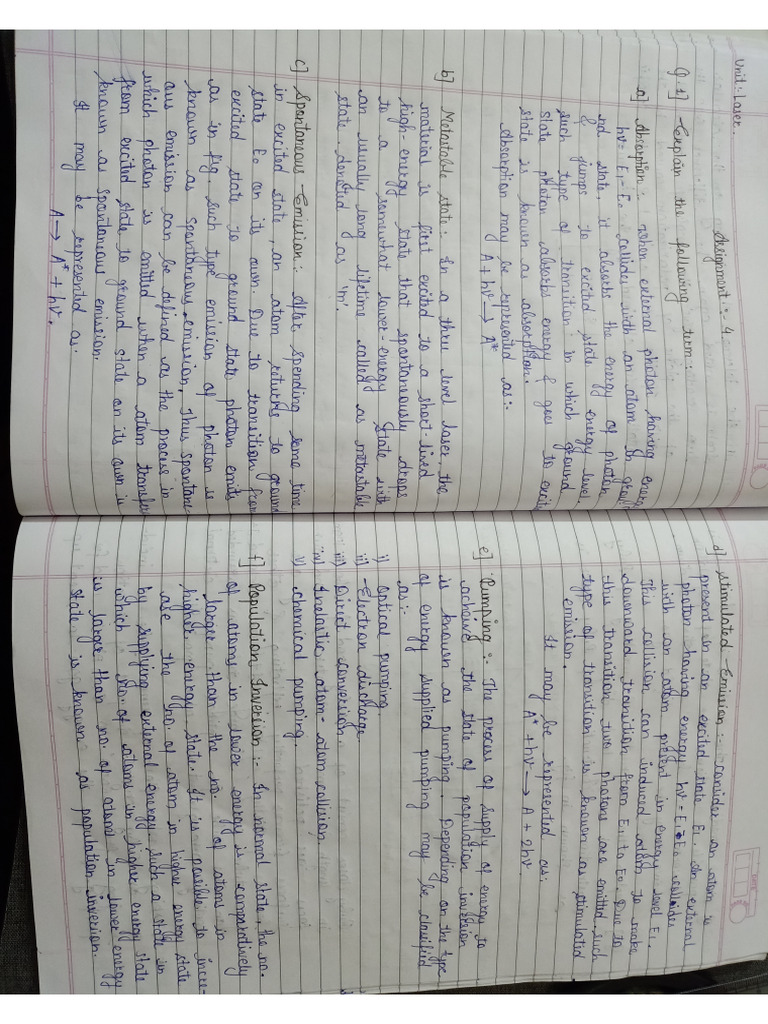 Unit :- Laser.
Assignment :- 4
Q.1] Explain the following term :-
a] Absorption :- when external photon having energy
hν = E1 - E0 collides with an atom in grou
nd state, it absorbs the energy of photon
& jumps to excited state energy level.
such type of transition in which ground
state photon absorbs energy & goes to excite
state is known as absorption.
Absorption may be represented as :-
A + hν → A*
b] Metastable state :- In a three level laser, the
material is first excited to a short-lived
high-energy state that spontaneously drops
to a somewhat lower-energy state with
an usually long lifetime called as metastable
state, denoted as 'm'.
c] Spontaneous Emission :- After spending some time
in excited state, an atom returns to ground
state E0 on its own. Due to transition from
excited state to ground state photon emits
as in fig. such type emission of photon is
known as spontaneous emission. Thus spontane-
ous emission can be defined as the process in
which photon is emitted when a atom transfer
from excited state to ground state on its own is
known as spontaneous emission.
It may be represented as :
A → A* + hν.
d] Stimulated Emission :- Consider an atom is
present in an excited state E1. An external
photon having energy hν = E1 - E0 collides
with an atom present in energy level E1.
This collision can induced atom to make
downward transition from E1 to E0. Due to
this transition two photons are emitted, such
type of transition is known as stimulated
emission.
It may be represented as :
A* + hν → A + 2hν
e] Pumping :- The process of supply of energy to
achieve the state of population inversion
is known as pumping. Depending on the type
of energy supplied pumping may be classified
as :-
i) Optical pumping.
ii) Electron discharge
iii) Direct conversion.
iv) Inelastic atom-atom collision
v) chemical pumping.
f] Population Inversion :- In normal state, the no.
of atoms in lower energy is comparatively
larger than the no. of atoms in
higher energy state. It is possible to incre-
ase the no. of atom in higher energy state
by supplying external energy such a state in
which no. of atoms in higher energy state
is larger than no. of atoms in lower energy
state is known as population inversion.